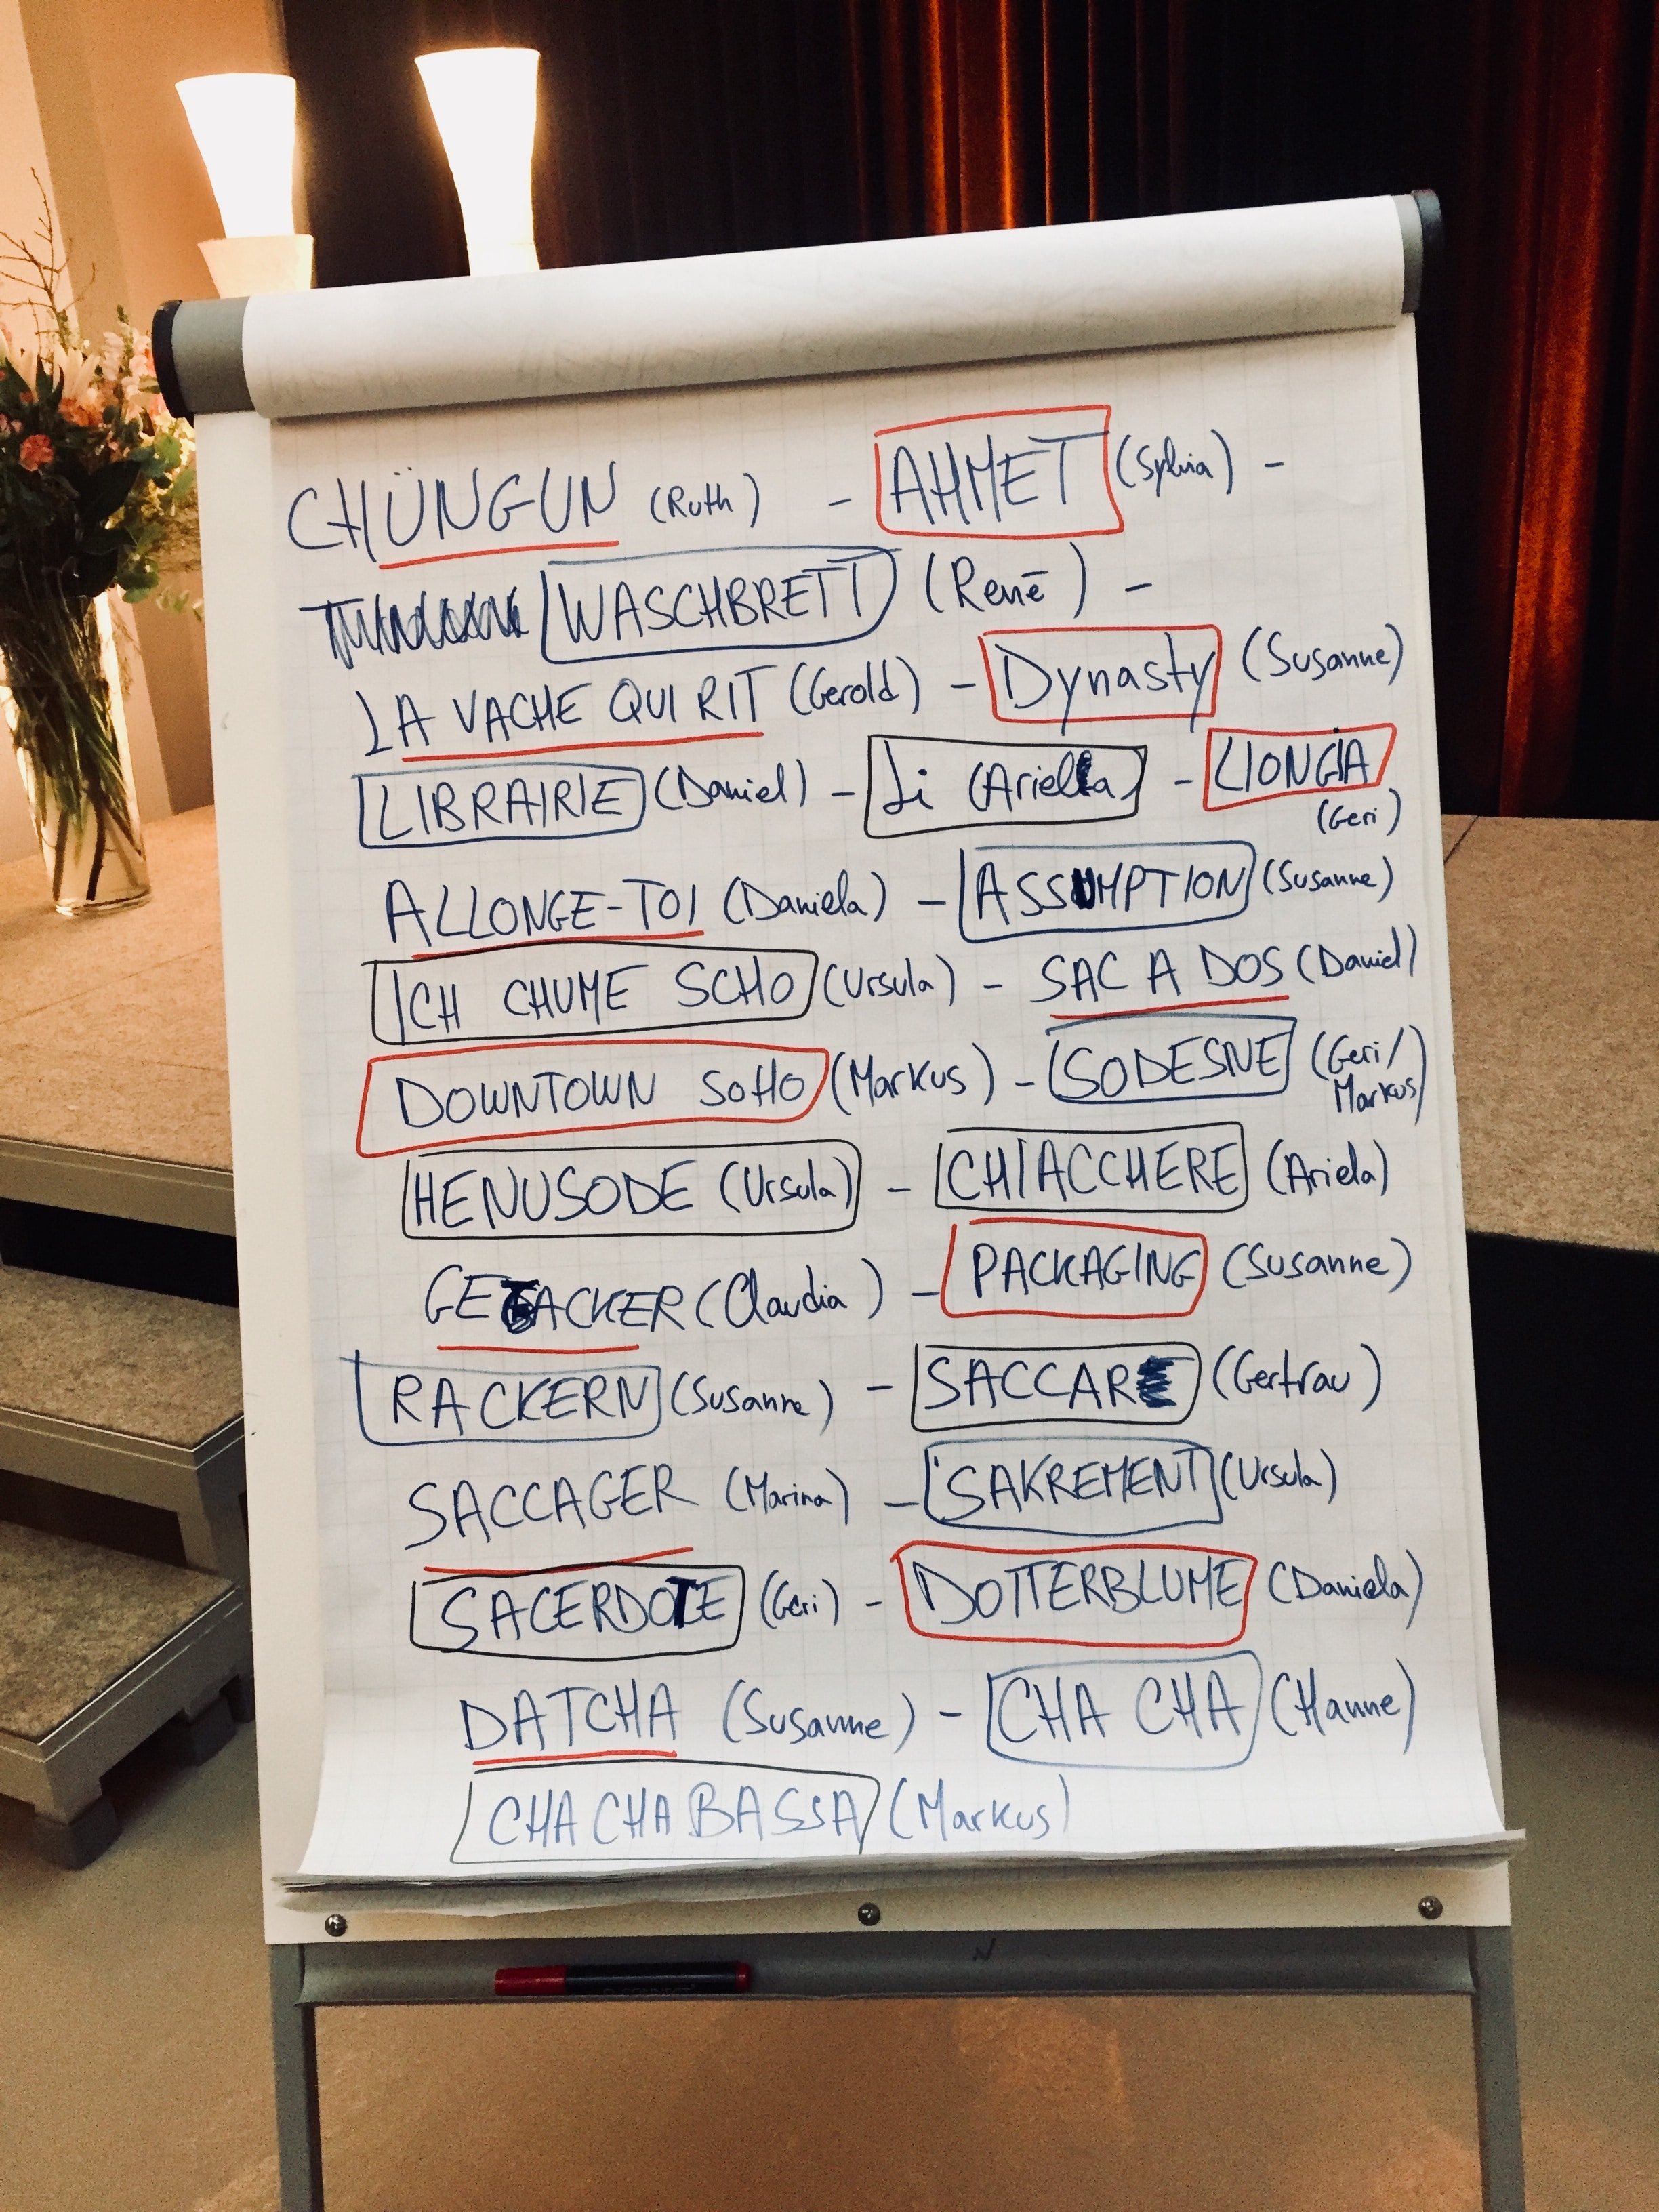 CHÜNGUN (Ruth) - AHMET (Sylvia) -
WASCHBRETT (René) -
LA VACHE QUI RIT (Gerold) - Dynasty (Susanne)
LIBRAIRIE (Daniel) - Li (Ariella) - LIONGIA
(Geri)
ALLONGE-TOI (Daniela) - ASSUMPTION (Susanne)
ICH CHUME SCHO (Ursula) - SAC A DOS (Daniel)
DOWNTOWN SOHO (Markus) - SODESNE (Geri/
Markus)
HENUSODE (Ursula) - CHIACCHERE (Ariela)
GETACKER (Claudia) - PACKAGING (Susanne)
RACKERN (Susanne) - SACCARE (Gertrau)
SACCAGER (Marina) - SAKREMENT (Ursula)
SACERDOTE (Geri) - DOTTERBLUME (Daniela)
DATCHA (Susanne) - CHA CHA (Hanne)
CHA CHA BASSA (Markus)